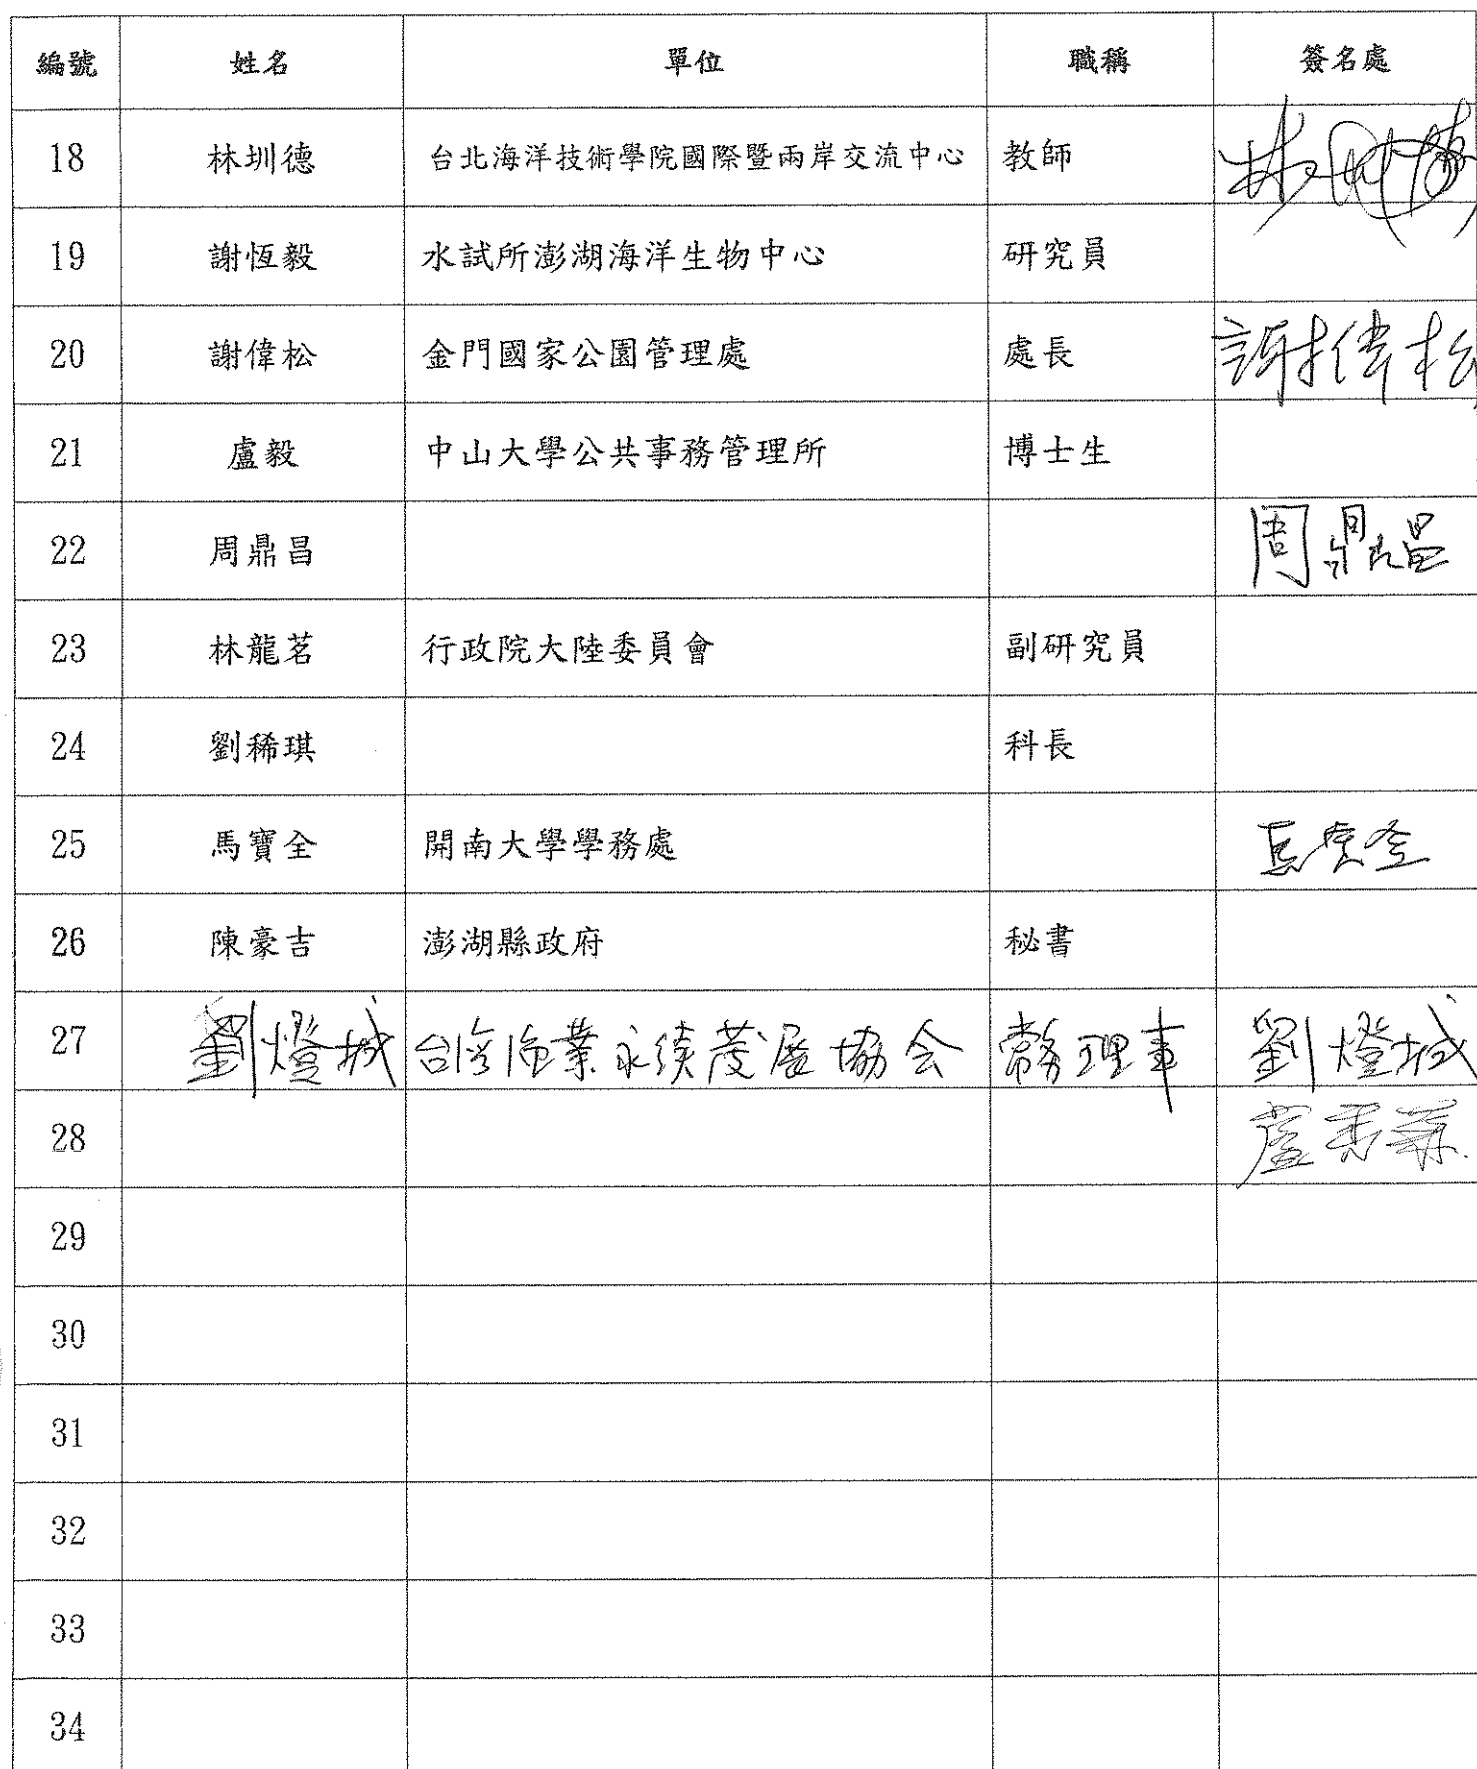 編號 姓名 單位 職稱 簽名處
18 林圳德 台北海洋技術學院國際暨兩岸交流中心 教師 林圳德
19 謝恆毅 水試所澎湖海洋生物中心 研究員
20 謝偉松 金門國家公園管理處 處長 謝偉松
21 盧毅 中山大學公共事務管理所 博士生
22 周鼎昌 周鼎昌
23 林龍茗 行政院大陸委員會 副研究員
24 劉稀琪 科長
25 馬寶全 開南大學學務處 馬寶全
26 陳豪吉 澎湖縣政府 秘書
27 劉燈城 台湾漁業永續發展協会 常務理事 劉燈城
28
29
30
31
32
33
34